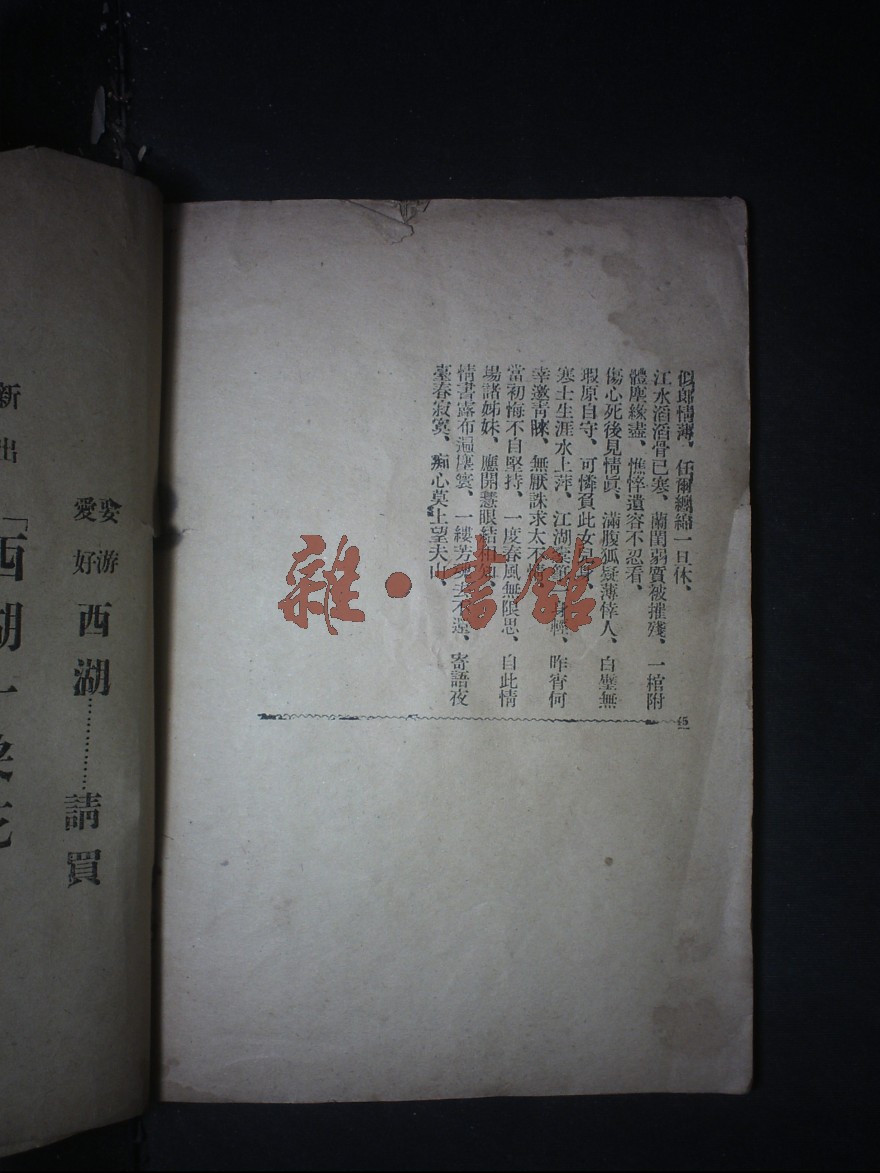 似郎情薄、任爾纏綿一旦休、
江水滔滔骨已寒、蘭閨弱質被摧殘、一棺附
體塵緣盡、憔悴遺容不忍看、
傷心死後見情眞、滿腹狐疑薄倖人、白璧無
瑕原自守、可憐負此女兒身、
寒士生涯水上萍、江湖賣身輕、昨宵何
幸邀靑睞、無厭誅求太不情、
當初悔不自堅持、一度春風無限思、自此情
場諸姊妹、應開慧眼結相知、
情書露布遍塵寰、一縷芳魂去不還、寄語夜
臺春寂寞、痴心莫上望夫山、
45
要游
愛好
西湖……………請買
新出「西湖一
雜·書館